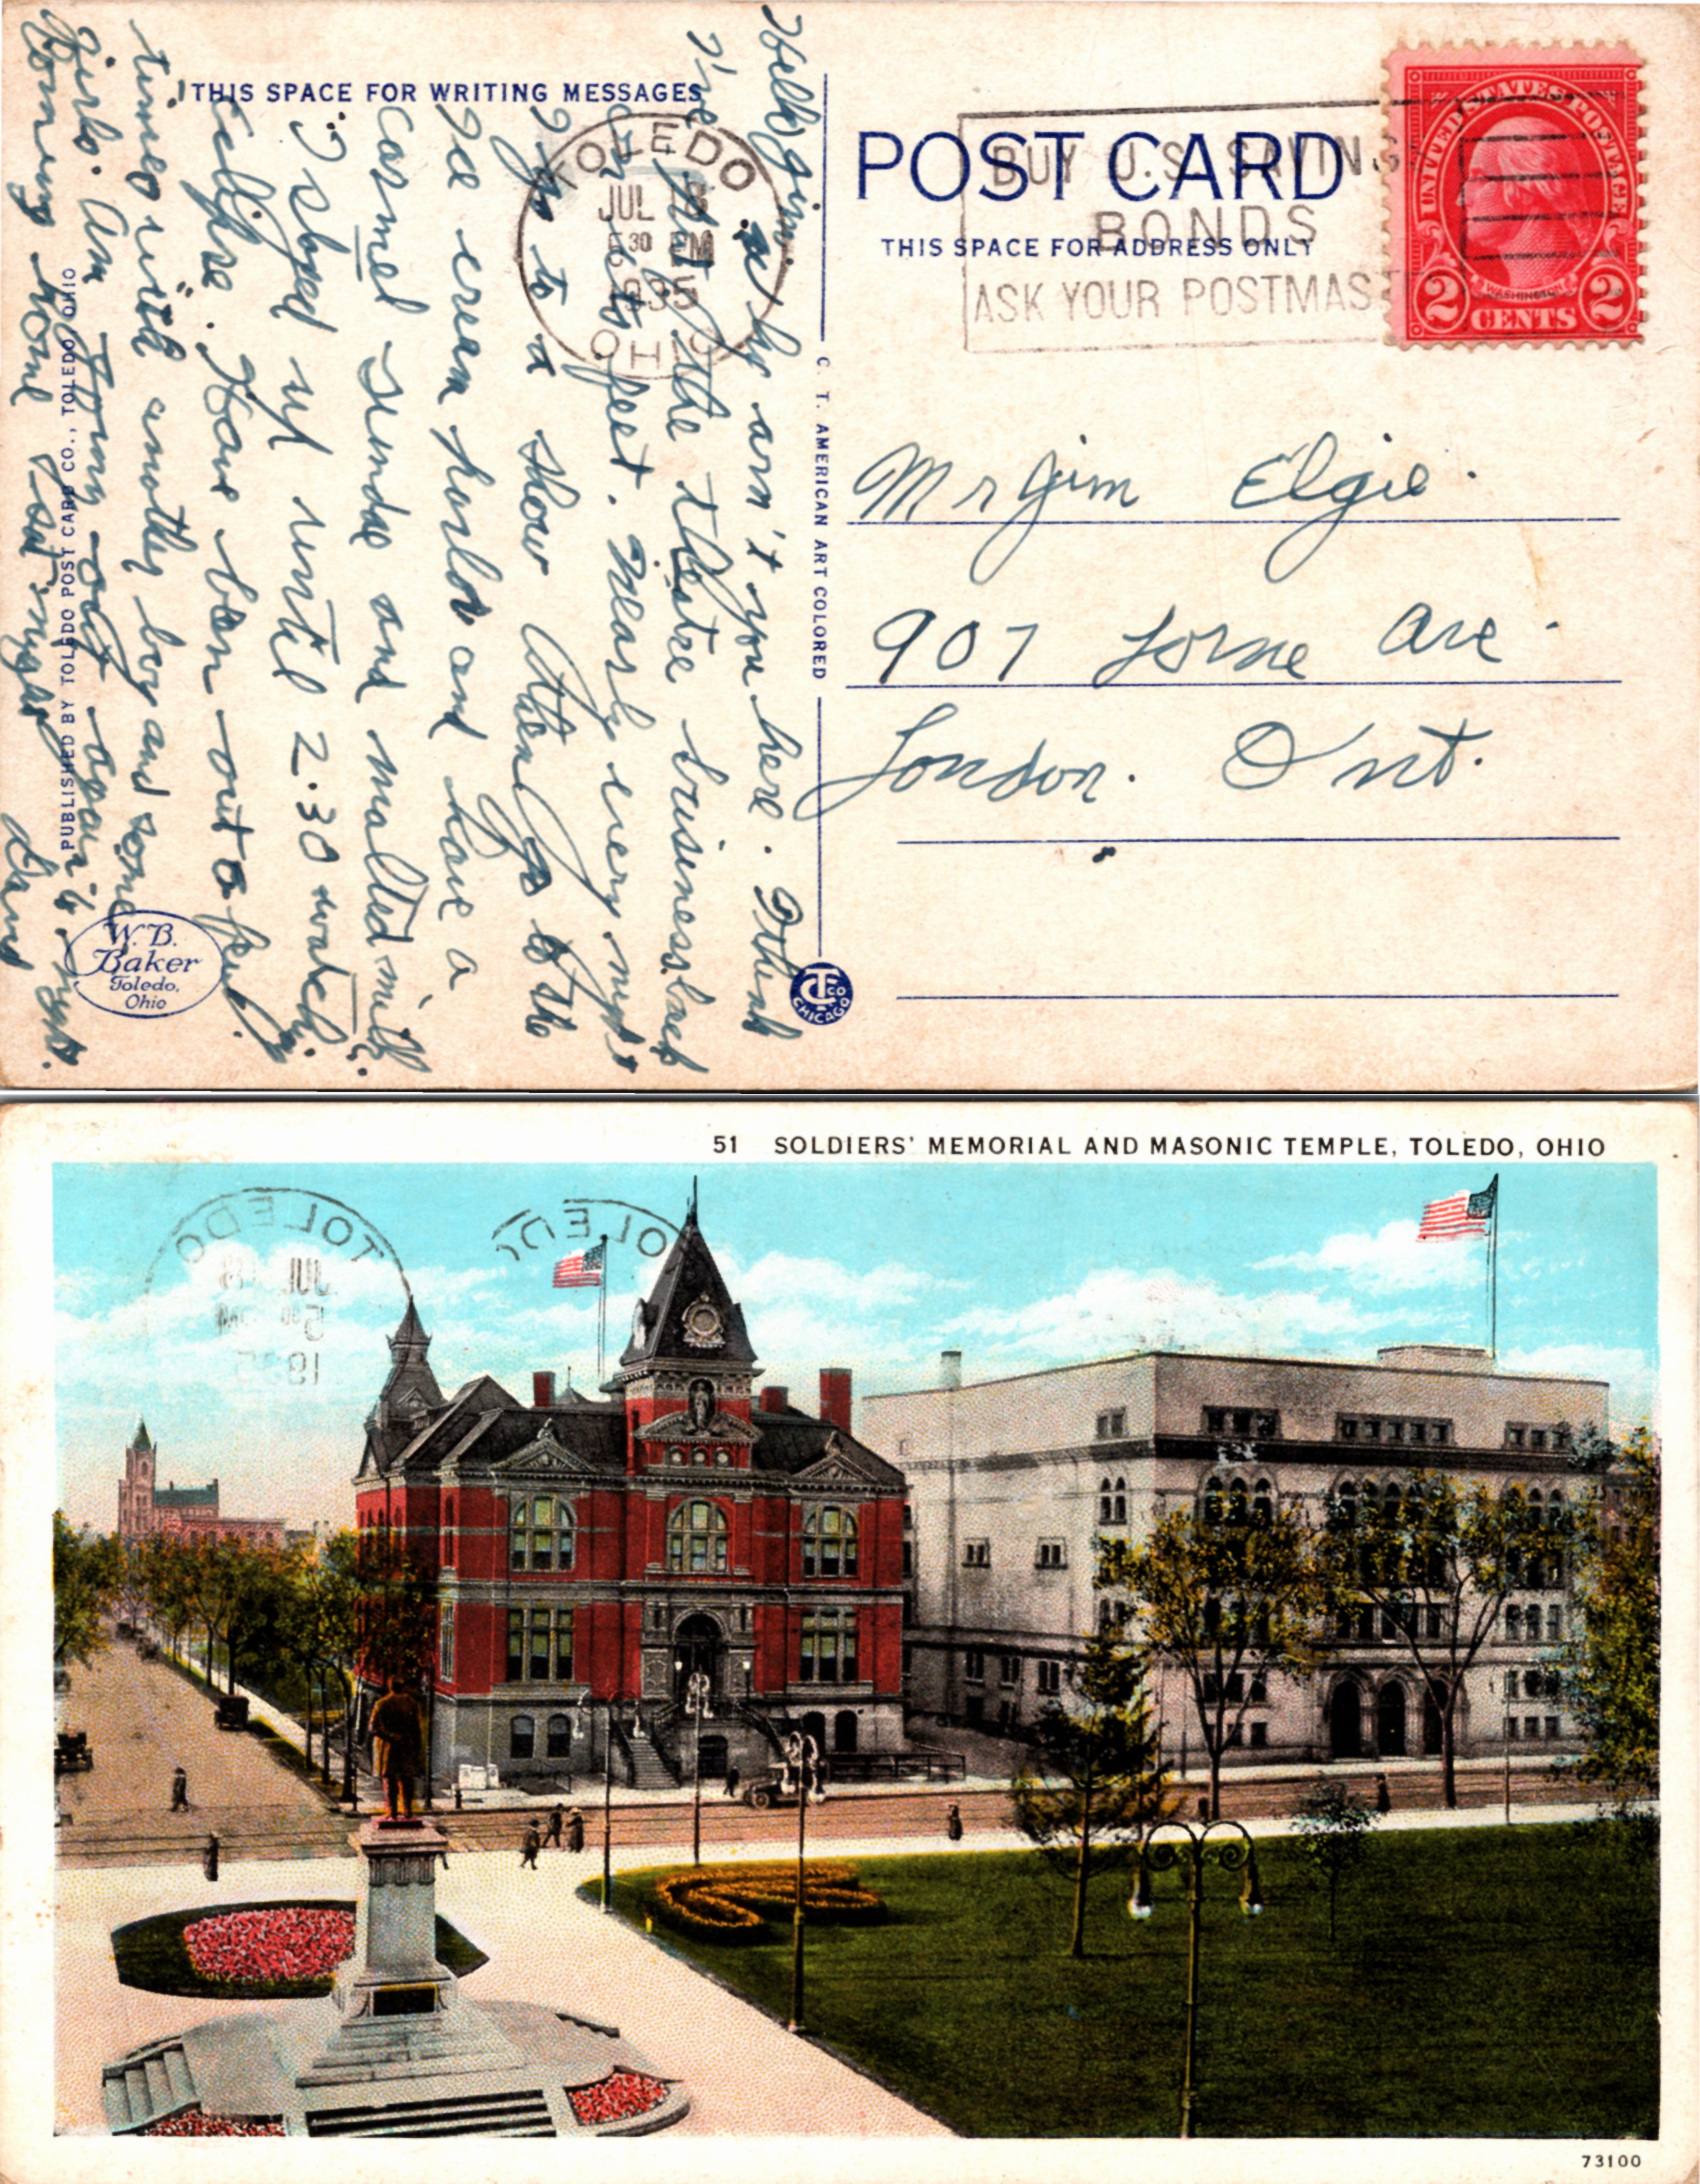 THIS SPACE FOR WRITING MESSAGES
POST CARD
THIS SPACE FOR ADDRESS ONLY
TOLEDO
JUL 18
5 30 PM
1935
OHIO
BUY U.S. SAVINGS
BONDS
ASK YOUR POSTMASTER
UNITED STATES POSTAGE
WASHINGTON
2 CENTS 2
Mr Jim Elgie.
907 Lorne Ave.
London. Ont.
Hello Jim why arn't you here. I think
I've the theatre business back
on its feet. Nearly every night
I go to a show then go to the
Ice cream parlor and have a
carmel sundae and malted milk.
I stayed up until 2.30 watch
fire. Have been out a few
times with another boy and some
girls. Am going out again to night.
Coming home
Dave
C. T. AMERICAN ART COLORED
PUBLISHED BY TOLEDO POST CARD CO., TOLEDO, OHIO
W. B.
Baker
Toledo,
Ohio
CT CO
CHICAGO
51 SOLDIERS' MEMORIAL AND MASONIC TEMPLE, TOLEDO, OHIO
TOLEDO
JUL 18
5 30 PM
1935
TOLEDO
73100